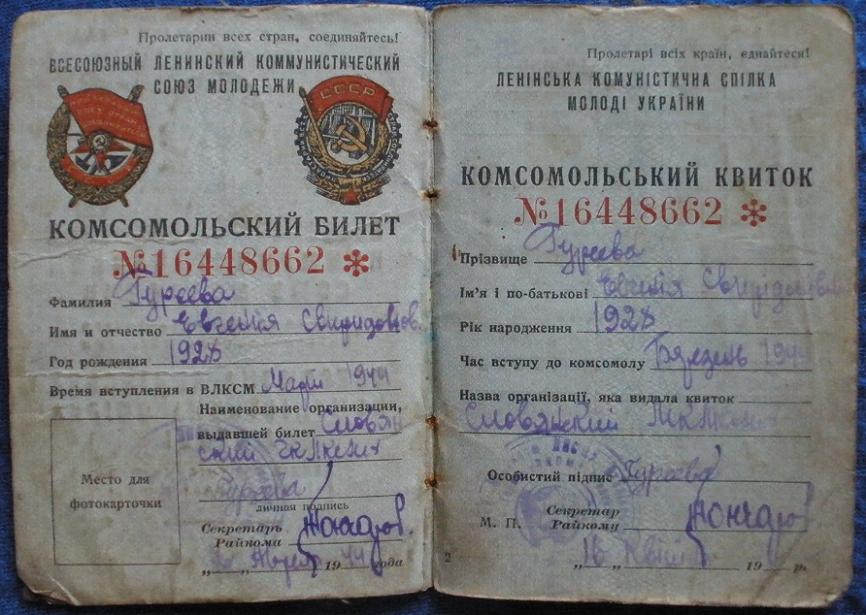 Пролетарии всех стран, соединяйтесь!
ВСЕСОЮЗНЫЙ ЛЕНИНСКИЙ КОММУНИСТИЧЕСКИЙ
СОЮЗ МОЛОДЕЖИ
СССР
КОМСОМОЛЬСКИЙ БИЛЕТ
№16448662 *
Фамилия Гуреева
Имя и отчество Евгенія
Год рождения 1928
Время вступления в ВЛКСМ Март 1944
Наименование организации,
выдавшей билет Словян
ский
Место для
фотокарточки
Гуреева
личная подпись
Секретарь
Райкома
" " 1944 года
Пролетарі всіх країн, єднайтеся!
ЛЕНІНСЬКА КОМУНІСТИЧНА СПІЛКА
МОЛОДІ УКРАЇНИ
КОМСОМОЛЬСЬКИЙ КВИТОК
№16448662 *
Прізвище Гуреева
Ім'я і по-батькові Евгенія
Рік народження 1928
Час вступу до комсомолу 1944
Назва організації, яка видала квиток
Словянский
Особистий підпис Гуреева
М. П. Секретар
Райкому
" 16 " 19 р.
2